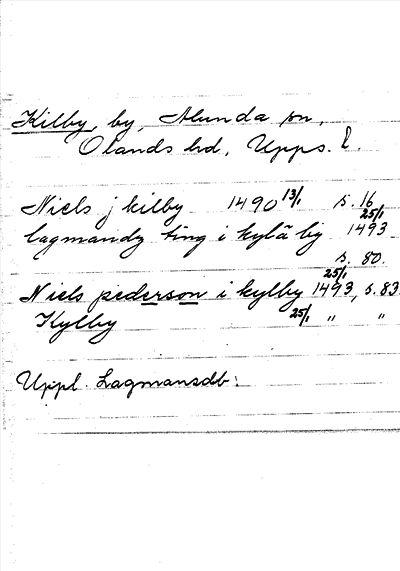 Kilby, by, Alunda sn,
Olands hd, Upps. l.
Niels j kilby 1490 13/1 s. 16
lagmandz ting i kylä by 25/1 1493
s. 80.
Niels pederson i kylby 25/1 1493, s. 83
Kylby 25/1 " "
Uppl. Lagmansdb: